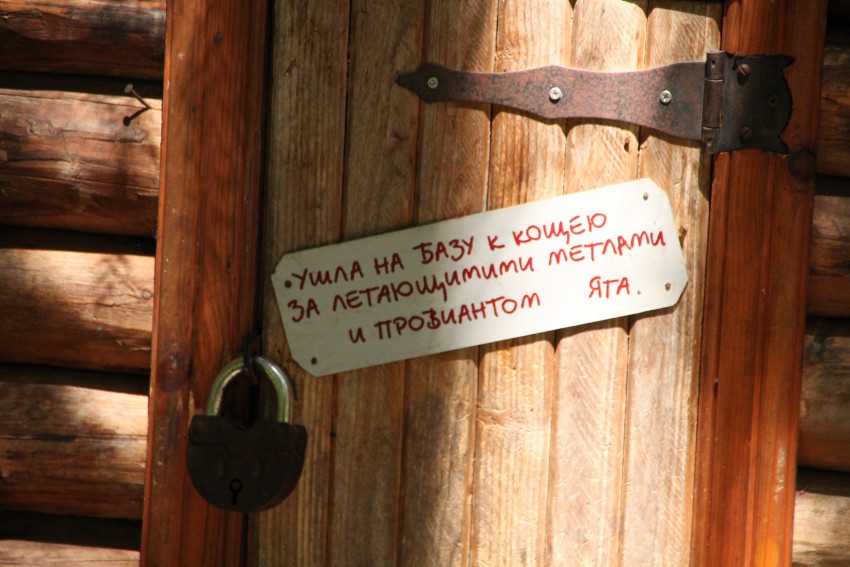 УШЛА НА БАЗУ К КОЩЕЮ
ЗА ЛЕТАЮЩИМИМИ МЕТЛАМИ
И ПРОВИАНТОМ ЯГА.